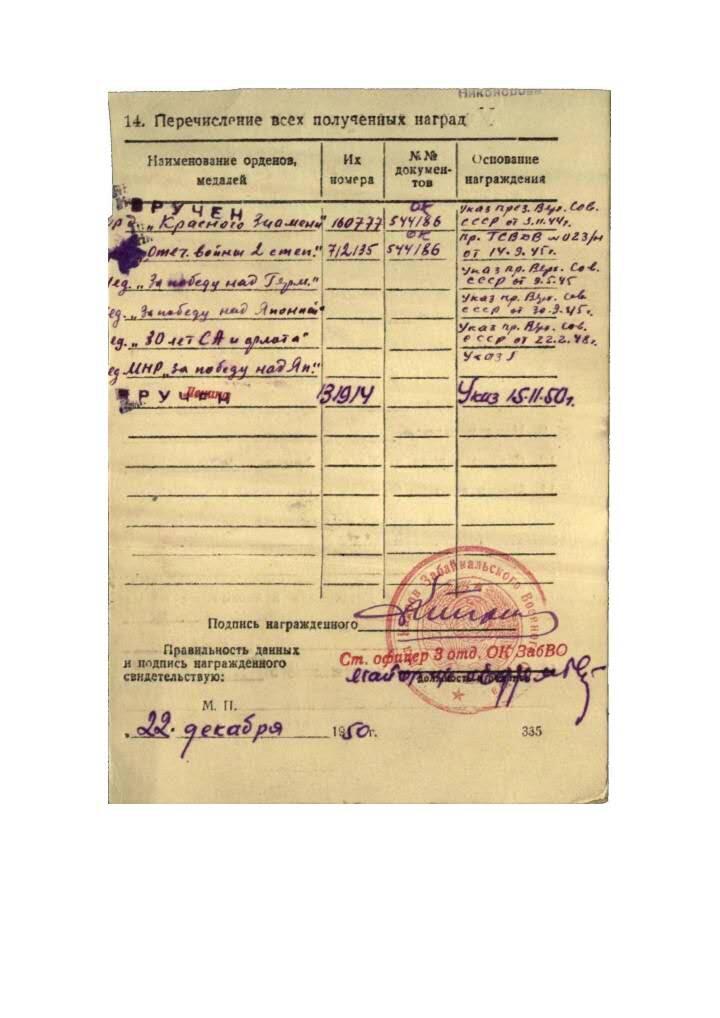 Никонорова
14. Перечисление всех полученных наград
Наименование орденов, медалей
Их номера
№№ документов
Основание награждения
ВРУЧЕН
"Красного Знамени" 160777 ОК 544186 Указ през. Верх. Сов. СССР от 3.11.44г.
Отеч. войны 2 степ." 712135 ОК 544186 пр. ТСВДВ №023/н от 14.9.45г.
ед. "За победу над Герм." Указ пр. Верх. Сов. СССР от 9.5.45
ед. "За победу над Японией" Указ пр. Верх. Сов. СССР от 30.9.45г.
ед. "30 лет СА и флота" Указ пр. Верх. Сов. СССР от 22.2.48г.
ед. МНР "За победу над Яп." Указ
ВРУЧЕН Ленина 131914 Указ 15.11.50г.
Подпись награжденного
Правильность данных
и подпись награжденного
свидетельствую:
Ст. офицер 3 отд. ОК ЗабВО
майор
М. П.
22. декабря 1950г. 335
Забайкальского Военного